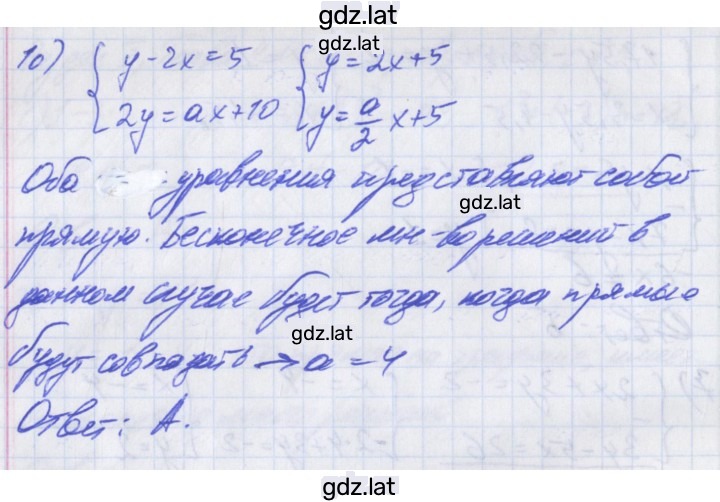 gdz.lat
10) { y-2x=5 { y=2x+5
gdz.lat
2y=ax+10 y=a/2 x+5
Оба уравнения представляют собой
gdz.lat
прямую. Бесконечное мн-во решений в
данном случае будет тогда, когда прямые
gdz.lat
будут совпадать → a=4
Ответ: А.
gdz.lat